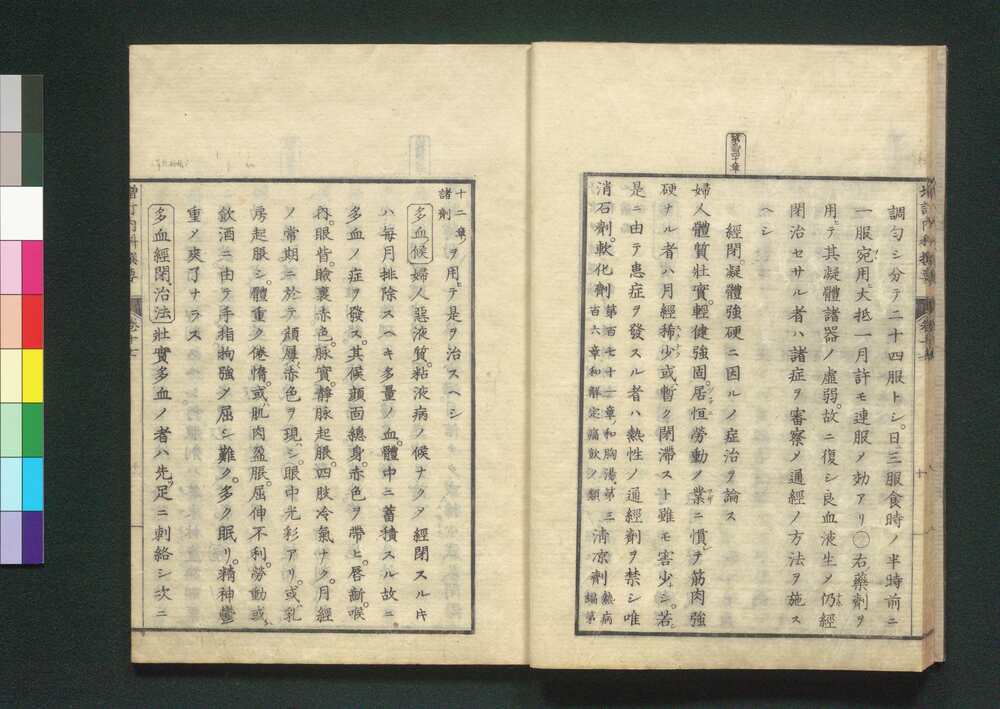 調匀シ分テ二十四服トシ。日三服食時ノ半時前ニ
一服宛用。大抵一月許モ連服ノ効アリ〇右ノ藥劑ヲ
用テ其凝體諸器ノ虛弱。故ニ復シ良血液生ノ仍經
閉治セサル者ハ諸症ヲ審察ノ通經ノ方法ヲ施ス
ヘシ
經閉。凝體強硬ニ因ルノ症治ヲ論ス
婦人體質壯實。輕健強固。居恒勞動ノ業ニ慣テ筋肉強
硬ナル者ハ月經稀少或暫ク閉滯スト雖モ害少シ。若
是ニ由テ患症ヲ發スル者ハ熱性ノ通經劑ヲ禁シ唯
消石劑。軟化劑 第百七十二章ノ和胸湯第三百六章和解定痛飲ノ類 清凉劑 熱病編第
十二章
諸劑 ヲ用テ是ヲ治スヘシ
多血候 婦人惡液質。粘液病ノ候ナクノ經閉スル𬼀
ハ每月排除スヘキ多量ノ血。體中ニ蓄積スル故ニ
多血ノ症ヲ發ス。其候顔面總身。赤色ヲ帶ヒ。唇齗喉
內。眼眥。瞼裏赤色。脉實。靜脉起脹。四肢冷氣ナク。月經
ノ常期ニ於テ頰唇。赤色ヲ現シ。眼中光彩アリ。或乳
房起脹シ。體重ク倦惰。或肌肉盈脹。屈伸不利。勞動或
飮酒ニ由テ手指拘強ノ屈シ難ク。多ク眠リ。精神鬱
重ノ爽了ナラス
多血經閉ノ治法 壯實多血ノ者ハ先ツ足ニ刺絡シ次ニ